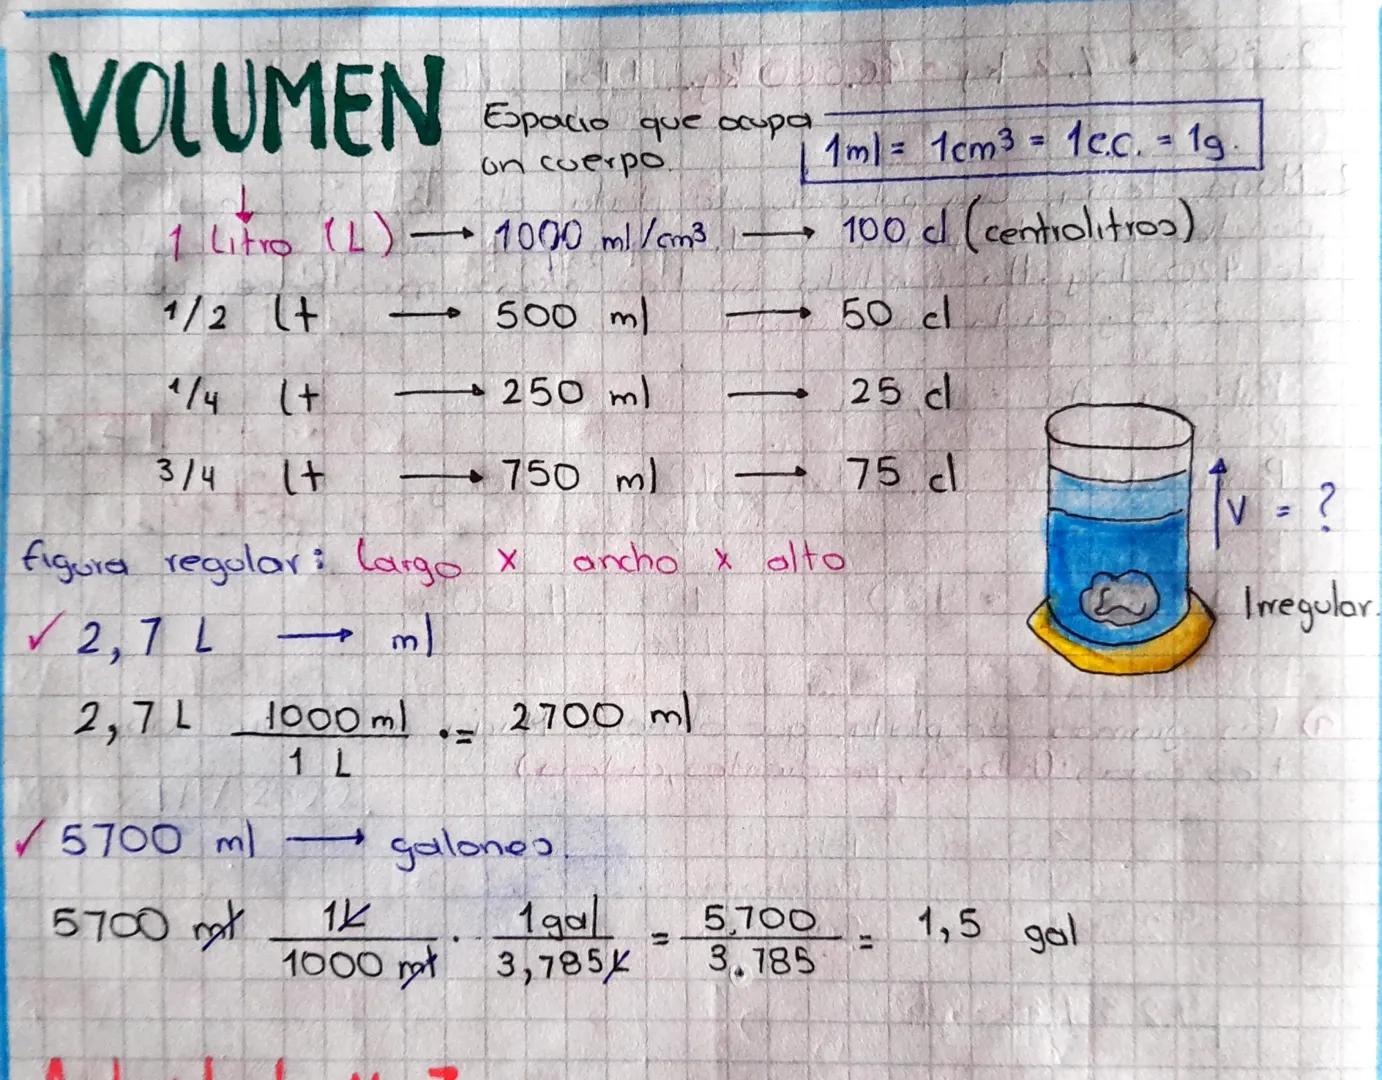 VOLUMEN
Espacio que ocupa
un cuerpo.
1ml = 1cm³ = 1c.c. = 1g.
1 Litro (L) → 1000 ml/cm³ → 100 cl (centrolitros)
1/2 lt → 500 ml → 50 cl
1/4 lt → 250 ml → 25 cl
3/4 lt → 750 ml → 75 cl
V = ?
Irregular.
figura regular: largo x ancho x alto
✓ 2,7 L → ml
2,7 L 1000 ml / 1 L .= 2700 ml
✓ 5700 ml → galones.
5700 ml 1L / 1000 ml . 1gal / 3,785L = 5.700 / 3.785 = 1,5 gal